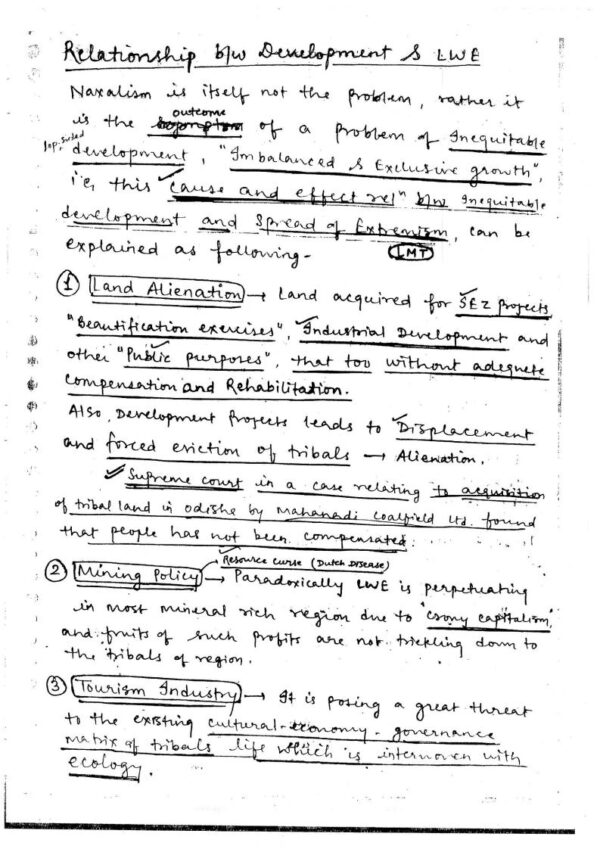 Relationship b/w Development & LWE
Naxalism is itself not the problem, rather it
outcome
is the symptom of a problem of Inequitable
lop-sided
development, "Imbalanced & Exclusive growth",
i.e, this cause and effect reln b/w Inequitable
development and spread of Extremism, can be
explained as following- LMT
1 Land Alienation → Land acquired for SEZ projects
"Beautification exercises", Industrial Development and
other "Public purposes", that too without adequete
Compensation and Rehabilitation.
Also, Development Projects leads to Displacement
and forced eviction of tribals → Alienation.
Supreme court in a case relating to acquisition
of tribal land in odisha by Mahanadi Coalfield Ltd. found
that people has not been compensated.
Resource curse (Dutch Disease)
2 Mining Policy → Paradoxically LWE is perpetuating
in most mineral rich region due to "crony capitalism"
and fruits of such profits are not trickling down to
the tribals of region.
3 Tourism Industry → It is posing a great threat
to the existing cultural-economy-governance
matrix of tribals life which is interwoven with
ecology.